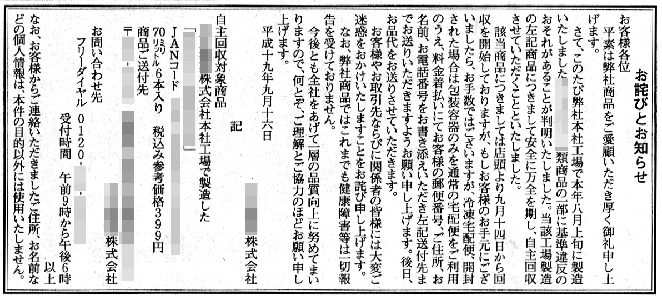 お詫びとお知らせ
お客様各位
平素は弊社商品をご愛顧いただき厚く御礼申し上
げます。
さて、このたび弊社本社工場で本年八月上旬に製造
いたしました
類商品の一部に基準違反の
おそれがあることが判明いたしました。当該工場製造
の左記商品につきまして安全に万全を期し、自主回収
させていただくことといたしました。
該当商品につきましては店頭より九月十四日から回
収を開始しておりますが、もしお客様のお手元にござ
いましたら、お手数ではございますが、冷凍宅配便、開封
された場合は包装容器のみを通常の宅配便をご利用
のうえ、料金着払いにてお客様の郵便番号、ご住所、お
名前、お電話番号をお書き添えいただき左記送付先ま
でお送りいただきますようお願い申し上げます。後日、
お品代をお送りさせていただきます。
お客様やお取引先ならびに関係者の皆様には大変ご
迷惑をおかけいたしますことをお詫び申し上げます。
なお、弊社商品ではこれまでも健康障害等は一切報
告を受けておりません。
今後とも全社をあげて一層の品質向上に努めてまい
りますので、何とぞ、ご理解とご協力のほどお願い申し
上げます。
平成十九年九月十六日
株式会社
記
自主回収対象商品
株式会社本社工場で製造した
「
JANコード
70ミリリットル6本入り 税込み参考価格399円
商品ご送付先
〒
株式会社
お問い合わせ先
フリーダイヤル 0120-
受付時間 午前9時から午後6時
以上
なお、お客様からご連絡いただきましたご住所、お名前な
どの個人情報は、本件の目的以外には使用いたしません。